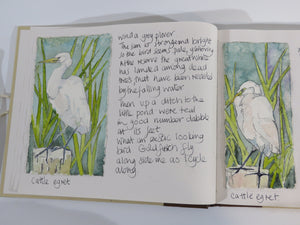 and a grey plover
The sun is strong and bright
so the bird seems pale, ghostly,
in the reserve the great white
has landed among dead
trees that have been revealed
by the falling water
Then up a ditch to the
little pond where teal
in good number dabble
at its feet
What an exotic looking
bird Goldfinch fly
along side me as I cycle
along
Cattle egret
Cattle egret